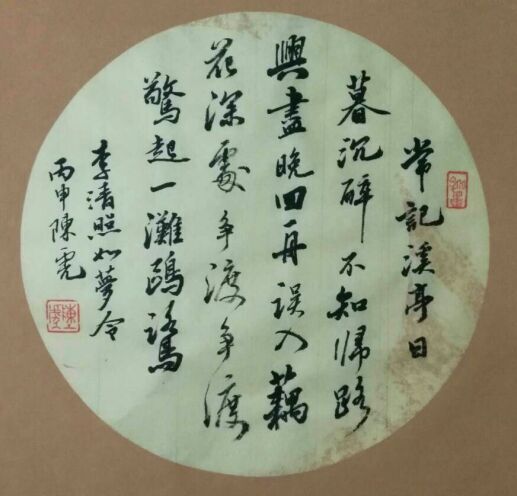 常記溪亭日
暮沉醉不知歸路
興盡晚回舟誤入藕
花深處爭渡爭渡
驚起一灘鷗鷺
李清照如夢令
丙申陳